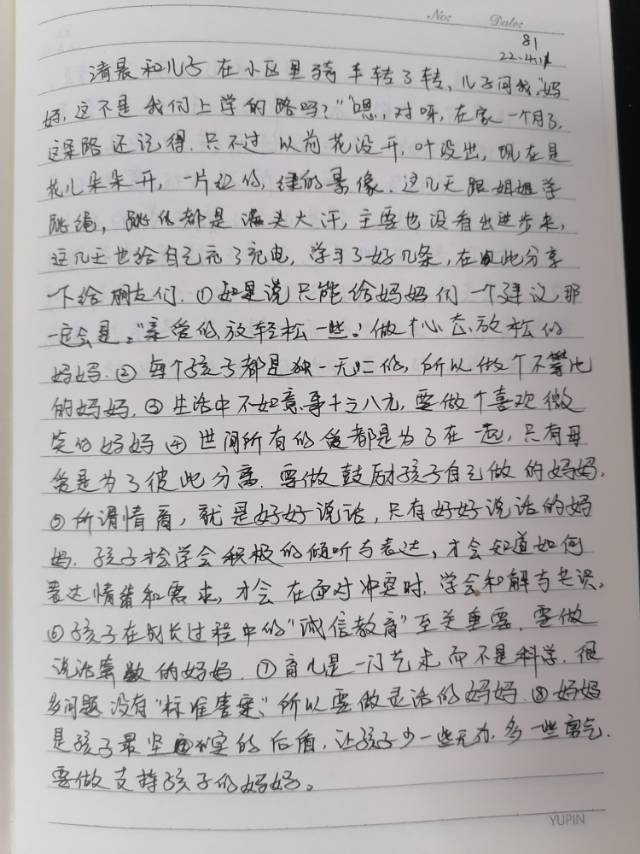 No: Date:
81
22.4.1
清晨和儿子在小区里骑车转了转，儿子问我"妈
妈，这不是我们上学的路吗？""嗯，对呀，在家一个月了，
这条路还记得．只不过以前花没开，叶没出，现在是
花儿朵朵开，一片红的，绿的景像．这几天跟姐姐学
跳绳，跳的都是满头大汗，主要也没看出进步来，
这几天也给自己充了充电，学习了好几条，在此分享
一下给朋友们．①如是说只能给妈妈们一个建议，那
一定会是。"亲爱的，放轻松一些！做个心态放松的
妈妈．②每个孩子都是独一无二的，所以做个不攀比
的妈妈．③生活中不如意，事十之八九，要做个喜欢微
笑的妈妈④世间所有的爱都是为了在一起，只有母
爱是为了彼此分离．要做鼓励孩子自己做的妈妈．
⑤所谓情商，就是好好说话，只有好好说话的妈
妈．孩子才会学会积极的倾听与表达，才会知道如何
表达情绪和需求，才会在面对冲突时．学会和解与共识．
⑥孩子在成长过程中的"诚信教育"至关重要．要做
说话算数的妈妈．⑦育儿是一门艺术而不是科学．很
多问题没有"标准答案"，所以要做灵活的妈妈．⑧妈妈
是孩子最坚实的后盾，让孩子少一些无力，多一些底气．
要做支持孩子的妈妈。
YUPIN